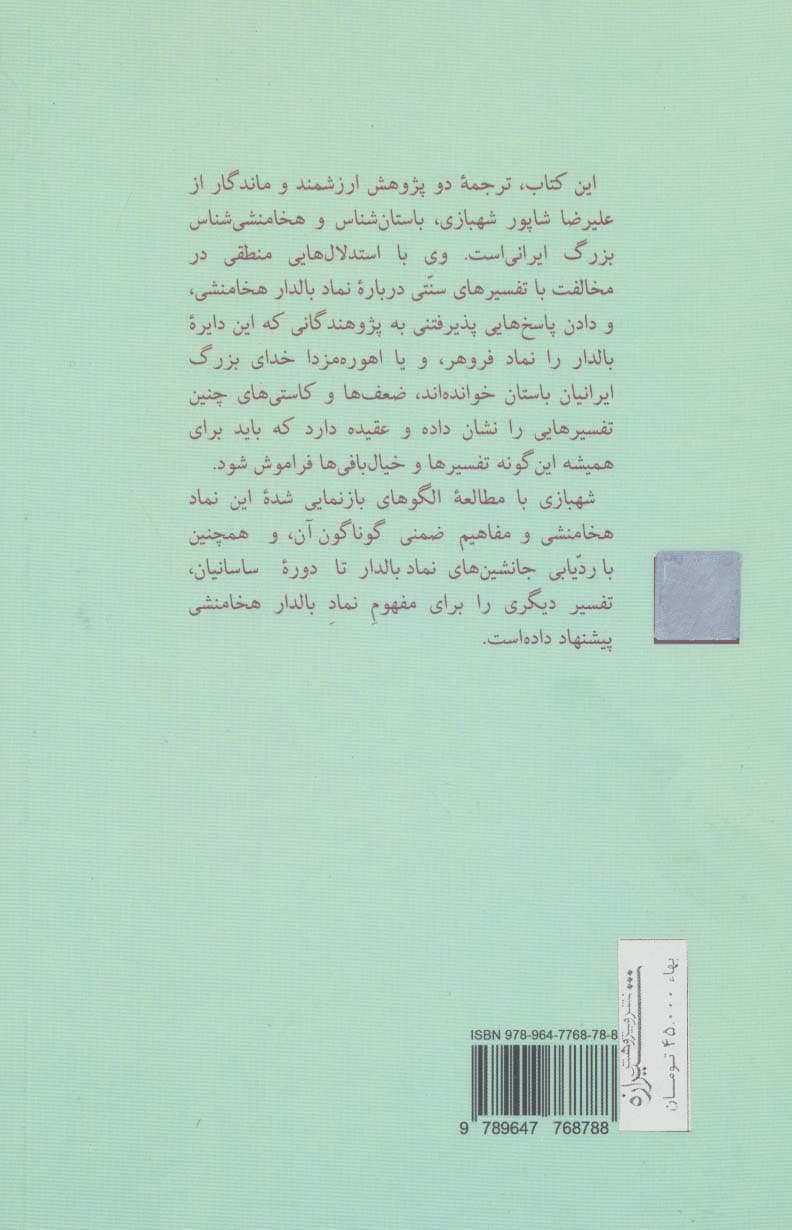 این کتاب، ترجمهٔ دو پژوهش ارزشمند و ماندگار از
علیرضا شاپور شهبازی، باستان‌شناس و هخامنشی‌شناس
بزرگ ایرانی‌است. وی با استدلال‌هایی منطقی در
مخالفت با تفسیرهای سنّتی دربارهٔ نماد بالدار هخامنشی،
و دادن پاسخ‌هایی پذیرفتنی به پژوهندگانی که این دایرهٔ
بالدار را نماد فروهر، و یا اهوره‌مزدا خدای بزرگ
ایرانیان باستان خوانده‌اند، ضعف‌ها و کاستی‌های چنین
تفسیرهایی را نشان داده و عقیده دارد که باید برای
همیشه این‌گونه تفسیرها و خیال‌بافی‌ها فراموش شود.
شهبازی با مطالعهٔ الگوهای بازنمایی شدهٔ این نماد
هخامنشی و مفاهیم ضمنی گوناگون آن، و همچنین
با ردّیابی جانشین‌های نماد بالدار تا دورهٔ ساسانیان،
تفسیر دیگری را برای مفهومِ نمادِ بالدار هخامنشی
پیشنهاد داده‌است.
بهاء ۴۵۰۰۰ تومان
نشر و پژوهش
شیرازه
ISBN 978-964-7768-78-8
9 789647 768788